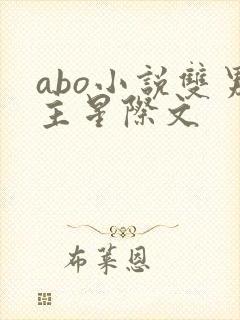 abo小說雙男
主星際文
布萊恩